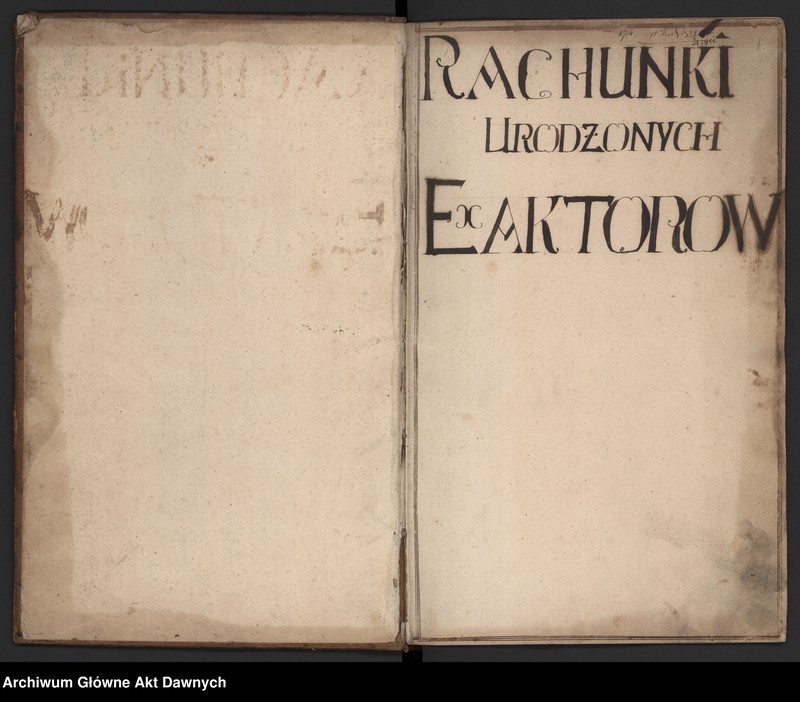 RACHUNKI
URODZONYCH
ExAKTOROW
Archiwum Główne Akt Dawnych